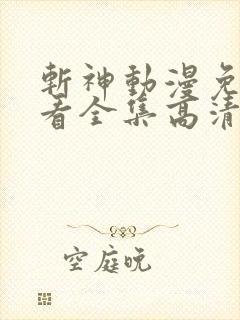 斬神動漫免
看全集高清
空庭晚